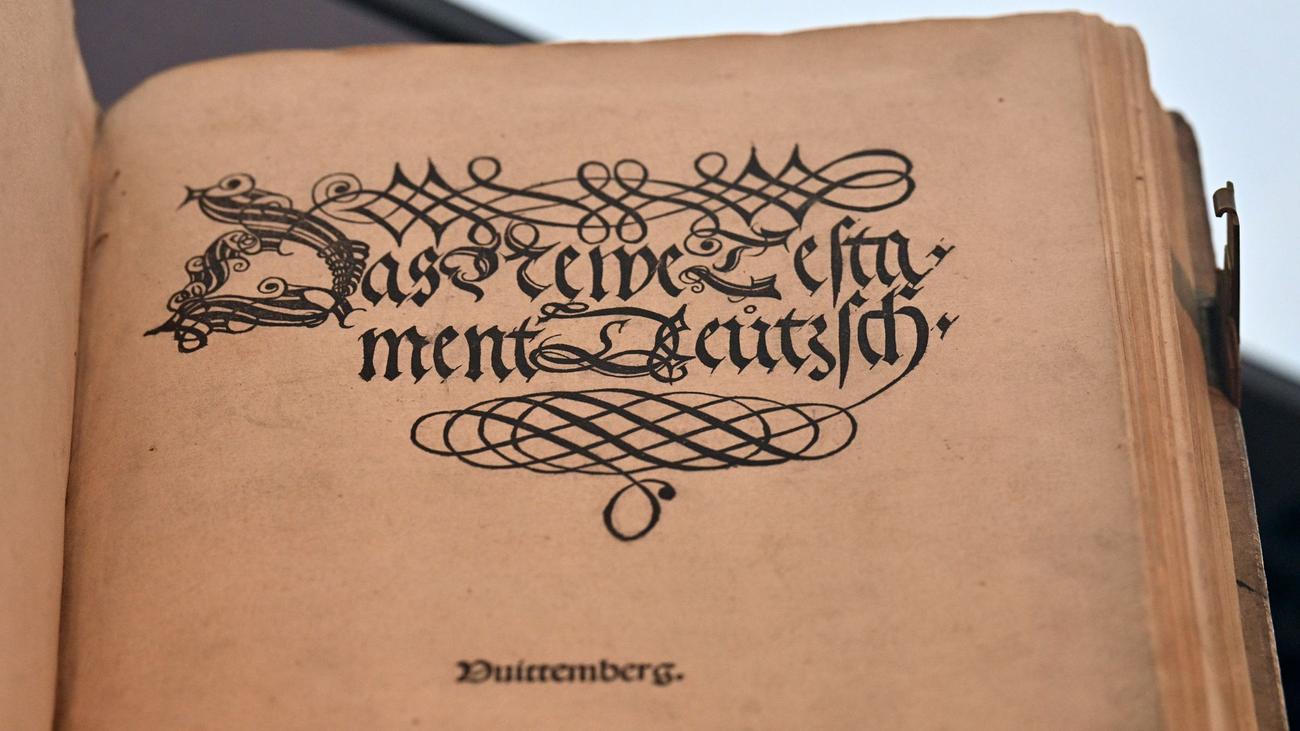 Das Newe Testa⸗
ment Deůtzſch⸗
Vuittemberg.